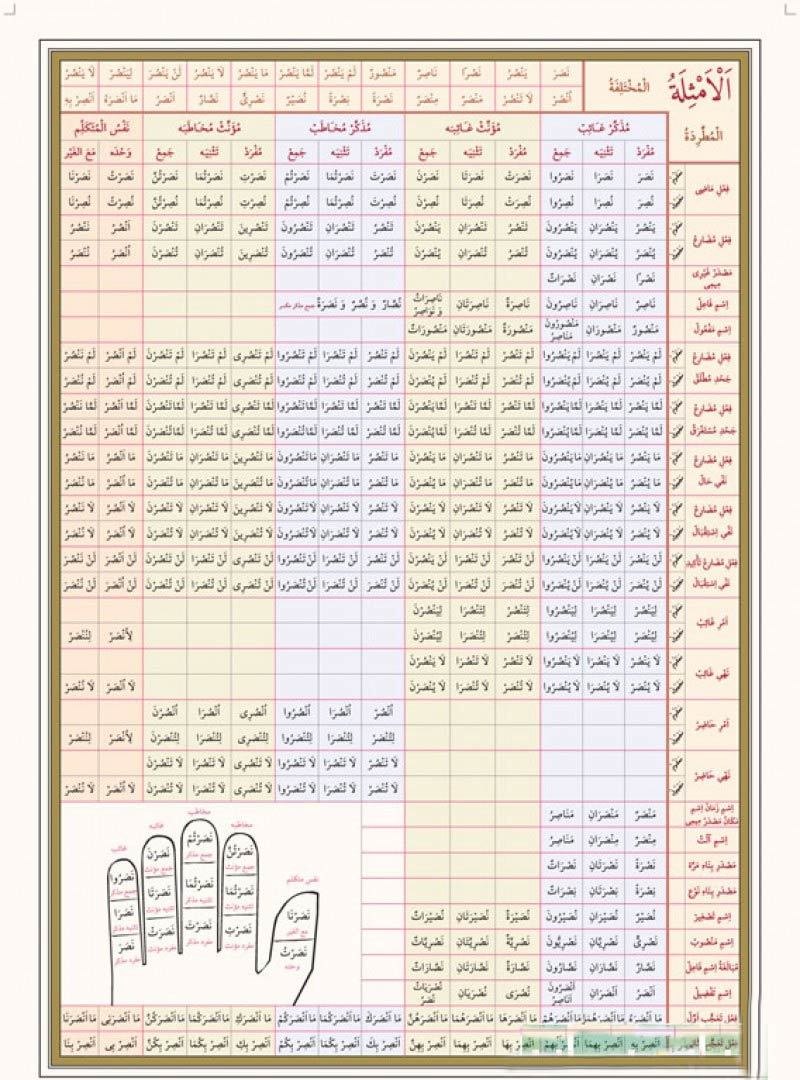 اَلْاَمْثِلَةُ الْمُخْتَلِفَةُ
نَصَرَ يَنْصُرُ نَصْرًا نَاصِرٌ مَنْصُورٌ لَمْ يَنْصُرْ لَمَّا يَنْصُرْ مَا يَنْصُرُ لَا يَنْصُرُ لَنْ يَنْصُرَ لِيَنْصُرْ لَا يَنْصُرْ
اُنْصُرْ لَا تَنْصُرْ مَنْصَرٌ مِنْصَرٌ نَصْرَةً نِصْرَةً نُصَيْرٌ نَصْرِىٌّ نَصَّارٌ اَنْصَرُ مَا اَنْصَرَهُ اَنْصِرْ بِهِ
الْمُطَّرِدَةُ
مُذَكَّرْ غَائِبْ مُؤَنَّثْ غَائِبَه مُذَكَّرْ مُخَاطَبْ مُؤَنَّثْ مُخَاطَبَه نَفْسُ الْمُتَكَلِّمِ
مُفْرَدْ تَثْنِيَه جَمِعْ مُفْرَدْ تَثْنِيَه جَمِعْ مُفْرَدْ تَثْنِيَه جَمِعْ مُفْرَدْ تَثْنِيَه جَمِعْ وَحْدَه مَعَ الْغَيْر
فِعْلِ مَاضِى نَصَرَ نَصَرَا نَصَرُوا نَصَرَتْ نَصَرَتَا نَصَرْنَ نَصَرْتَ نَصَرْتُمَا نَصَرْتُمْ نَصَرْتِ نَصَرْتُمَا نَصَرْتُنَّ نَصَرْتُ نَصَرْنَا
نُصِرَ نُصِرَا نُصِرُوا نُصِرَتْ نُصِرَتَا نُصِرْنَ نُصِرْتَ نُصِرْتُمَا نُصِرْتُمْ نُصِرْتِ نُصِرْتُمَا نُصِرْتُنَّ نُصِرْتُ نُصِرْنَا
فِعْلِ مُضَارِعْ يَنْصُرُ يَنْصُرَانِ يَنْصُرُونَ تَنْصُرُ تَنْصُرَانِ يَنْصُرْنَ تَنْصُرُ تَنْصُرَانِ تَنْصُرُونَ تَنْصُرِينَ تَنْصُرَانِ تَنْصُرْنَ اَنْصُرُ نَنْصُرُ
يُنْصَرُ يُنْصَرَانِ يُنْصَرُونَ تُنْصَرُ تُنْصَرَانِ يُنْصَرْنَ تُنْصَرُ تُنْصَرَانِ تُنْصَرُونَ تُنْصَرِينَ تُنْصَرَانِ تُنْصَرْنَ اُنْصَرُ نُنْصَرُ
مَصْدَرْ غَيْرِى مِيمِى نَصْرًا نَصْرَانِ نَصْرَاتٌ
اِسْمِ فَاعِلْ نَاصِرٌ نَاصِرَانِ نَاصِرُونَ نَاصِرَةٌ نَاصِرَتَانِ نَاصِرَاتٌ وَ نَوَاصِرُ نُصَّارٌ وَ نُصَّرٌ وَ نَصَرَةٌ جمع مذكر مكسر
اِسْمِ مَفْعُولْ مَنْصُورٌ مَنْصُورَانِ مَنْصُورُونَ مَنَاصِرُ مَنْصُورَةٌ مَنْصُورَتَانِ مَنْصُورَاتٌ
فِعْلِ مُضَارِعْ لَمْ يَنْصُرْ لَمْ يَنْصُرَا لَمْ يَنْصُرُوا لَمْ تَنْصُرْ لَمْ تَنْصُرَا لَمْ يَنْصُرْنَ لَمْ تَنْصُرْ لَمْ تَنْصُرَا لَمْ تَنْصُرُوا لَمْ تَنْصُرِى لَمْ تَنْصُرَا لَمْ تَنْصُرْنَ لَمْ اَنْصُرْ لَمْ نَنْصُرْ
جَحْدِ مُطْلَقْ لَمْ يُنْصَرْ لَمْ يُنْصَرَا لَمْ يُنْصَرُوا لَمْ تُنْصَرْ لَمْ تُنْصَرَا لَمْ يُنْصَرْنَ لَمْ تُنْصَرْ لَمْ تُنْصَرَا لَمْ تُنْصَرُوا لَمْ تُنْصَرِى لَمْ تُنْصَرَا لَمْ تُنْصَرْنَ لَمْ اُنْصَرْ لَمْ نُنْصَرْ
فِعْلِ مُضَارِعْ لَمَّا يَنْصُرْ لَمَّا يَنْصُرَا لَمَّا يَنْصُرُوا لَمَّا تَنْصُرْ لَمَّا تَنْصُرَا لَمَّا يَنْصُرْنَ لَمَّا تَنْصُرْ لَمَّا تَنْصُرَا لَمَّا تَنْصُرُوا لَمَّا تَنْصُرِى لَمَّا تَنْصُرَا لَمَّا تَنْصُرْنَ لَمَّا اَنْصُرْ لَمَّا نَنْصُرْ
جَحْدِ مُسْتَغْرَقْ لَمَّا يُنْصَرْ لَمَّا يُنْصَرَا لَمَّا يُنْصَرُوا لَمَّا تُنْصَرْ لَمَّا تُنْصَرَا لَمَّا يُنْصَرْنَ لَمَّا تُنْصَرْ لَمَّا تُنْصَرَا لَمَّا تُنْصَرُوا لَمَّا تُنْصَرِى لَمَّا تُنْصَرَا لَمَّا تُنْصَرْنَ لَمَّا اُنْصَرْ لَمَّا نُنْصَرْ
فِعْلِ مُضَارِعْ مَا يَنْصُرُ مَا يَنْصُرَانِ مَا يَنْصُرُونَ مَا تَنْصُرُ مَا تَنْصُرَانِ مَا يَنْصُرْنَ مَا تَنْصُرُ مَا تَنْصُرَانِ مَا تَنْصُرُونَ مَا تَنْصُرِينَ مَا تَنْصُرَانِ مَا تَنْصُرْنَ مَا اَنْصُرُ مَا نَنْصُرُ
نَفْىِ حَالْ مَا يُنْصَرُ مَا يُنْصَرَانِ مَا يُنْصَرُونَ مَا تُنْصَرُ مَا تُنْصَرَانِ مَا يُنْصَرْنَ مَا تُنْصَرُ مَا تُنْصَرَانِ مَا تُنْصَرُونَ مَا تُنْصَرِينَ مَا تُنْصَرَانِ مَا تُنْصَرْنَ مَا اُنْصَرُ مَا نُنْصَرُ
فِعْلِ مُضَارِعْ لَا يَنْصُرُ لَا يَنْصُرَانِ لَا يَنْصُرُونَ لَا تَنْصُرُ لَا تَنْصُرَانِ لَا يَنْصُرْنَ لَا تَنْصُرُ لَا تَنْصُرَانِ لَا تَنْصُرُونَ لَا تَنْصُرِينَ لَا تَنْصُرَانِ لَا تَنْصُرْنَ لَا اَنْصُرُ لَا نَنْصُرُ
نَفْىِ اِسْتِقْبَالْ لَا يُنْصَرُ لَا يُنْصَرَانِ لَا يُنْصَرُونَ لَا تُنْصَرُ لَا تُنْصَرَانِ لَا يُنْصَرْنَ لَا تُنْصَرُ لَا تُنْصَرَانِ لَا تُنْصَرُونَ لَا تُنْصَرِينَ لَا تُنْصَرَانِ لَا تُنْصَرْنَ لَا اُنْصَرُ لَا نُنْصَرُ
فِعْلِ مُضَارِعْ تَأْكِيدِ لَنْ يَنْصُرَ لَنْ يَنْصُرَا لَنْ يَنْصُرُوا لَنْ تَنْصُرَ لَنْ تَنْصُرَا لَنْ يَنْصُرْنَ لَنْ تَنْصُرَ لَنْ تَنْصُرَا لَنْ تَنْصُرُوا لَنْ تَنْصُرِى لَنْ تَنْصُرَا لَنْ تَنْصُرْنَ لَنْ اَنْصُرَ لَنْ نَنْصُرَ
نَفْىِ اِسْتِقْبَالْ لَنْ يُنْصَرَ لَنْ يُنْصَرَا لَنْ يُنْصَرُوا لَنْ تُنْصَرَ لَنْ تُنْصَرَا لَنْ يُنْصَرْنَ لَنْ تُنْصَرَ لَنْ تُنْصَرَا لَنْ تُنْصَرُوا لَنْ تُنْصَرِى لَنْ تُنْصَرَا لَنْ تُنْصَرْنَ لَنْ اُنْصَرَ لَنْ نُنْصَرَ
اَمْرِ غَائِبْ لِيَنْصُرْ لِيَنْصُرَا لِيَنْصُرُوا لِتَنْصُرْ لِتَنْصُرَا لِيَنْصُرْنَ
لِيُنْصَرْ لِيُنْصَرَا لِيُنْصَرُوا لِتُنْصَرْ لِتُنْصَرَا لِيُنْصَرْنَ لِاُنْصَرْ لِنُنْصَرْ
نَهْىِ غَائِبْ لَا يَنْصُرْ لَا يَنْصُرَا لَا يَنْصُرُوا لَا تَنْصُرْ لَا تَنْصُرَا لَا يَنْصُرْنَ
لَا يُنْصَرْ لَا يُنْصَرَا لَا يُنْصَرُوا لَا تُنْصَرْ لَا تُنْصَرَا لَا يُنْصَرْنَ لَا اُنْصَرْ لَا نُنْصَرْ
اَمْرِ حَاضِرْ اُنْصُرْ اُنْصُرَا اُنْصُرُوا اُنْصُرِى اُنْصُرَا اُنْصُرْنَ
لِتُنْصَرْ لِتُنْصَرَا لِتُنْصَرُوا لِتُنْصَرِى لِتُنْصَرَا لِتُنْصَرْنَ لِاُنْصَرْ لِنُنْصَرْ
نَهْىِ حَاضِرْ لَا تَنْصُرْ لَا تَنْصُرَا لَا تَنْصُرُوا لَا تَنْصُرِى لَا تَنْصُرَا لَا تَنْصُرْنَ
لَا تُنْصَرْ لَا تُنْصَرَا لَا تُنْصَرُوا لَا تُنْصَرِى لَا تُنْصَرَا لَا تُنْصَرْنَ لَا اُنْصَرْ لَا نُنْصَرْ
اِسْمِ زَمَانْ اِسْمِ مَكَانْ مَصْدَرْ مِيمِى مَنْصَرٌ مَنْصَرَانِ مَنَاصِرُ
اِسْمِ آلَتْ مِنْصَرٌ مِنْصَرَانِ مَنَاصِرُ
مَصْدَرْ بِنَاءِ مَرَّه نَصْرَةً نَصْرَتَانِ نَصْرَاتٌ
مَصْدَرْ بِنَاءِ نَوْعْ نِصْرَةً نِصْرَتَانِ نِصْرَاتٌ
اِسْمِ تَصْغِيرْ نُصَيْرٌ نُصَيْرَانِ نُصَيْرُونَ نُصَيْرَةٌ نُصَيْرَتَانِ نُصَيْرَاتٌ
اِسْمِ مَنْسُوبْ نَصْرِىٌّ نَصْرِيَّانِ نَصْرِيُّونَ نَصْرِيَّةٌ نَصْرِيَّتَانِ نَصْرِيَّاتٌ
مُبَالَغَةُ اِسْمِ فَاعِلْ نَصَّارٌ نَصَّارَانِ نَصَّارُونَ نَصَّارَةٌ نَصَّارَتَانِ نَصَّارَاتٌ
اِسْمِ تَفْضِيلْ اَنْصَرُ اَنْصَرَانِ اَنْصَرُونَ اَنَاصِرُ نُصْرَى نُصْرَيَانِ نُصْرَيَاتٌ نُصَرٌ
فِعْلِ تَعَجُّبِ اَوَّلْ مَا اَنْصَرَهُ مَا اَنْصَرَهُمَا مَا اَنْصَرَهُمْ مَا اَنْصَرَهَا مَا اَنْصَرَهُمَا مَا اَنْصَرَهُنَّ مَا اَنْصَرَكَ مَا اَنْصَرَكُمَا مَا اَنْصَرَكُمْ مَا اَنْصَرَكِ مَا اَنْصَرَكُمَا مَا اَنْصَرَكُنَّ مَا اَنْصَرَنِى مَا اَنْصَرَنَا
اَنْصِرْ بِهِ اَنْصِرْ بِهِمَا اَنْصِرْ بِهِمْ بِهَا اَنْصِرْ بِهِمَا اَنْصِرْ بِهِنَّ اَنْصِرْ بِكَ اَنْصِرْ بِكُمَا اَنْصِرْ بِكُمْ اَنْصِرْ بِكِ اَنْصِرْ بِكُمَا اَنْصِرْ بِكُنَّ اَنْصِرْ بِى اَنْصِرْ بِنَا
نفس متكلم
نَصَرْنَا
مع الغير
نَصَرْتُ
وحده
مخاطبه
نَصَرْتُنَّ
جمع مؤنث
نَصَرْتُمَا
تثنيه مؤنث
نَصَرْتِ
مفرد مؤنث
مخاطب
نَصَرْتُمْ
جمع مذكر
نَصَرْتُمَا
تثنيه مذكر
نَصَرْتَ
مفرد مذكر
غائبه
نَصَرْنَ
جمع مؤنث
نَصَرَتَا
تثنيه مؤنث
نَصَرَتْ
مفرد مؤنث
غائب
نَصَرُوا
جمع مذكر
نَصَرَا
تثنيه مذكر
نَصَرَ
مفرد مذكر